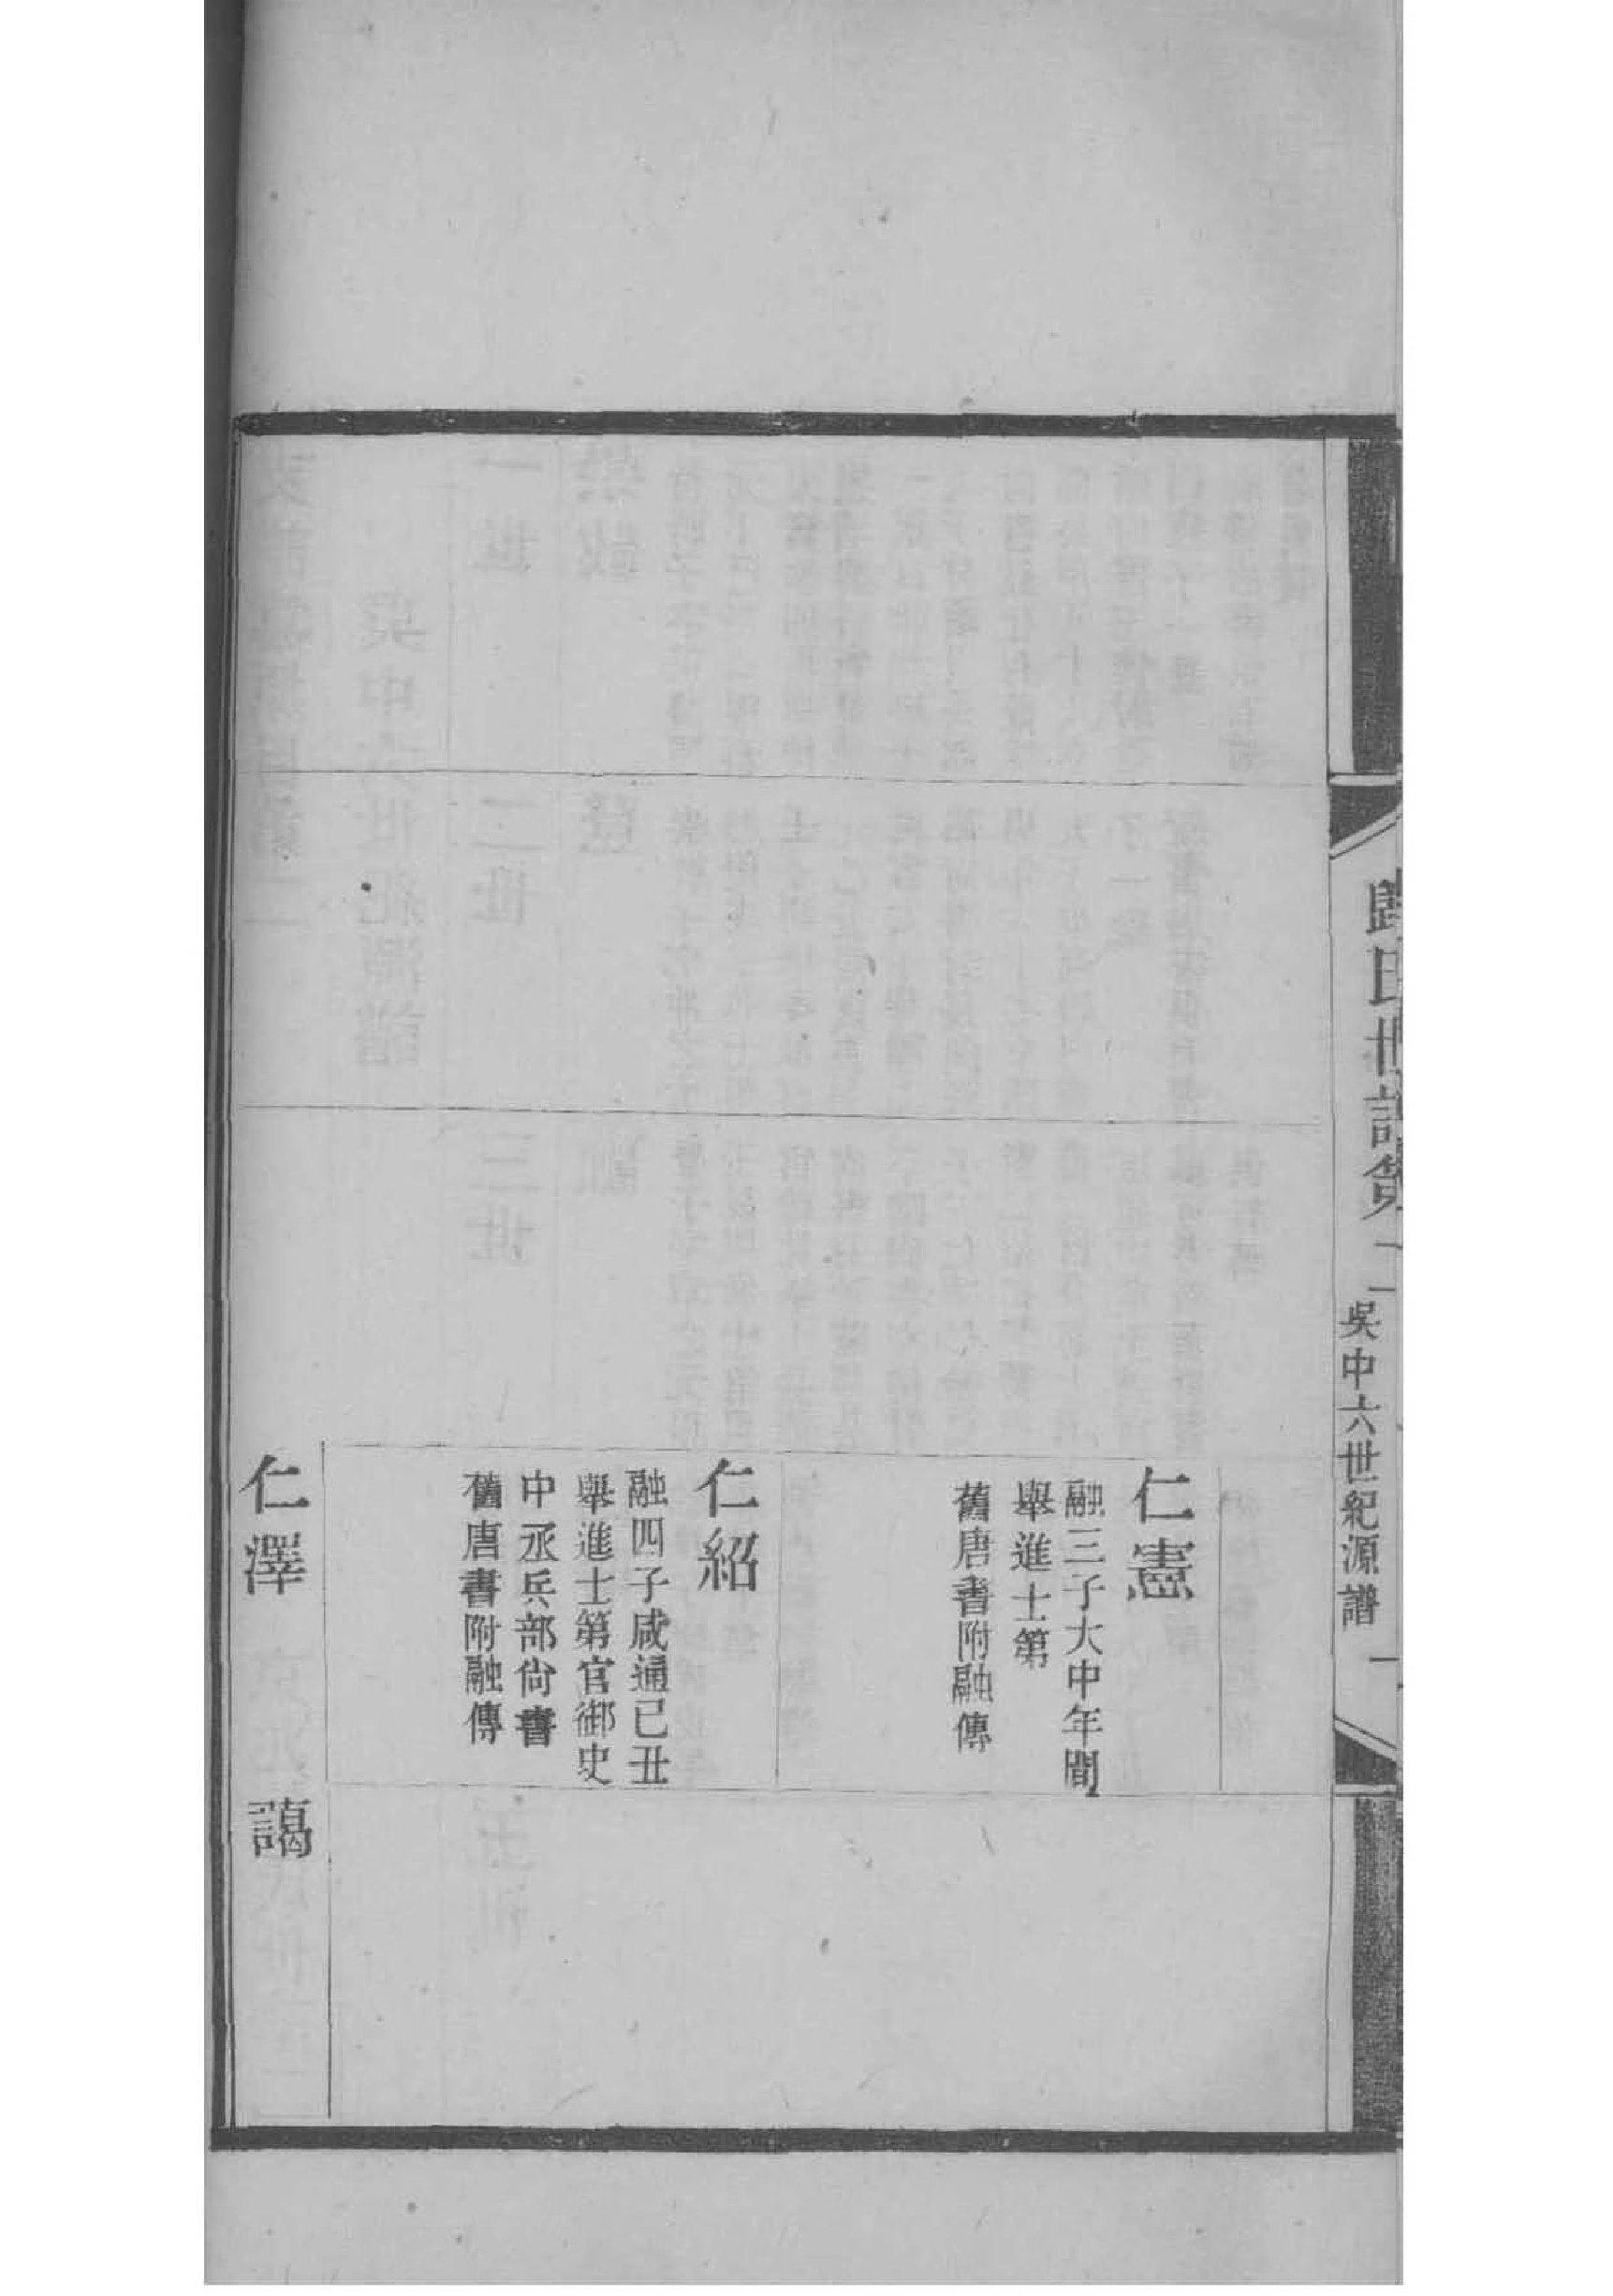 歸氏世譜第一
吳中六世紀源譜 一
仁憲
融三子大中年間
舉進士第
舊唐書附融傳
仁紹
融四子咸通已丑
舉進士第官御史
中丞兵部尙書
舊唐書附融傳
仁澤
藹